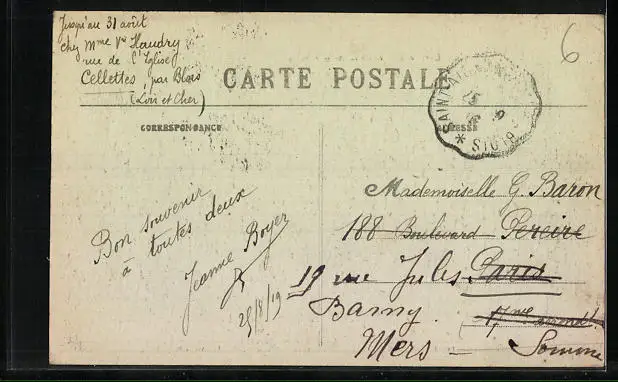 Jusqu'au 31 août
chez Mme Vve Haudry
rue de l'Eglise
Cellettes par Blois
(Loir et Cher)
6
CARTE POSTALE
CORRESPONDANCE
ADRESSE
Bon souvenir
à toutes deux
Jeanne Boyer
25/8/19
Mademoiselle G. Baron
188 Boulevard Pereire
Paris
17me arrondt
19 rue Jules
Barny
Mers - Somme